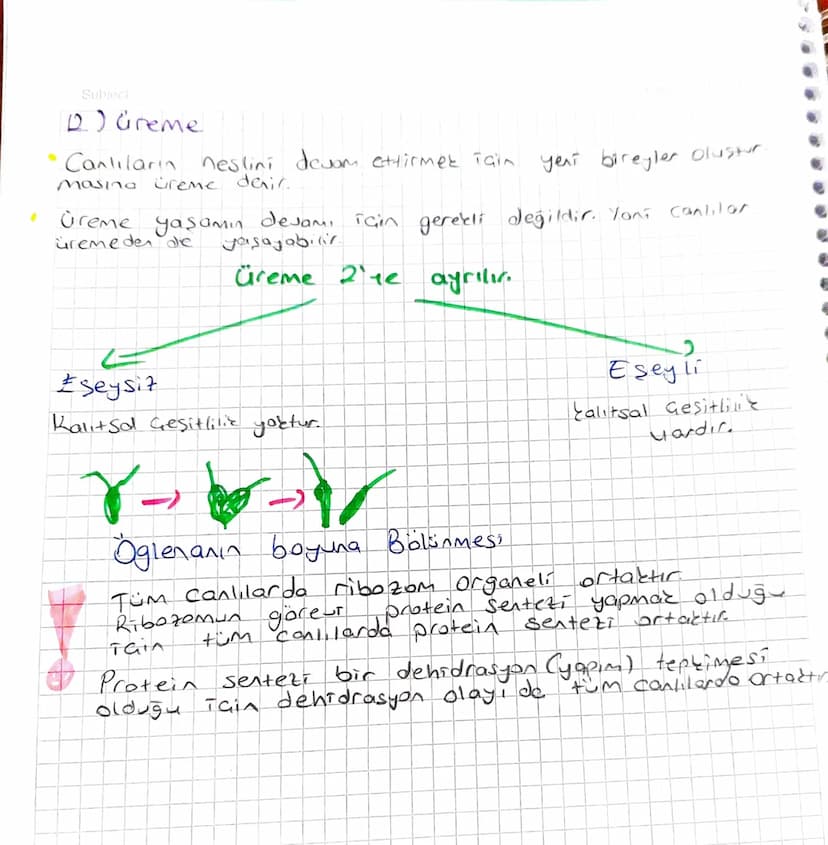 Subject
12) Üreme
Canlıların neslini devam ettirmek için yeni bireyler oluştur
masına üreme denir.
Üreme yaşamın devamı için gerekli değildir. Yani canlılar
üremeden de yaşayabilir.
Üreme 2'ye ayrılır.
Eşeysiz
Eşeyli
Kalıtsal Çeşitlilik yoktur.
kalıtsal Çeşitlilik
vardır.
Öglenanın boyuna Bölünmesi
Tüm canlılarda ribozom organeli ortaktır.
Ribozomun görevi protein sentezi yapmak olduğu
için tüm canlılarda protein sentezi ortaktır.
Protein sentezi bir dehidrasyon (yapım) tepkimesi
olduğu için dehidrasyon olayı da tüm canlılarda ortaktır